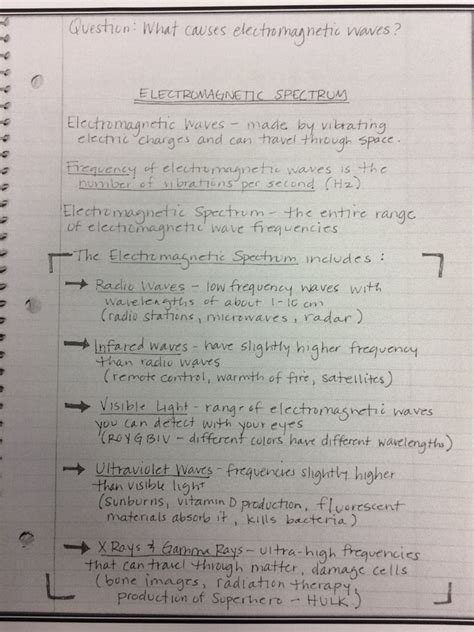 Question: What causes electromagnetic waves?
ELECTROMAGNETIC SPECTRUM
Electromagnetic Waves - made by vibrating
electric charges and can travel through space.
Frequency of electromagnetic waves is the
number of vibrations per second (Hz)
Electromagnetic Spectrum - the entire range
of electromagnetic wave frequencies
The Electromagnetic Spectrum includes:
→ Radio Waves - low frequency waves with
wavelengths of about 1-10 cm
(radio stations, microwaves, radar)
→ Infared waves - have slightly higher frequency
than radio waves
(remote control, warmth of fire, satellites)
→ Visible Light - range of electromagnetic waves
you can detect with your eyes
(ROYGBIV - different colors have different wavelengths)
→ Ultraviolet Waves - frequencies slightly higher
than visible light
(sunburns, vitamin D production, fluorescent
materials absorb it, kills bacteria)
→ X Rays & Gamma Rays - ultra-high frequencies
that can travel through matter, damage cells
(bone images, radiation therapy,
production of Superhero - HULK)